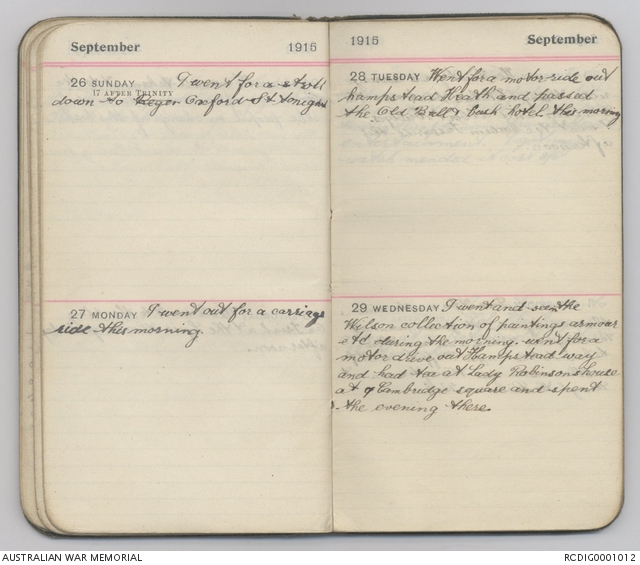 September 1915
26 SUNDAY I went for a stroll
17 AFTER TRINITY
down to Oxford St tonight
27 MONDAY I went out for a carriage
ride this morning.
1915 September
28 TUESDAY Went for a motor ride out
hampstead Heath and passed
the Old Bull & bush hotel this morning
29 WEDNESDAY I went and seen the
Wilson collection of paintings armour
etc during the morning. went for a
motor drive out Hampstead way
and had tea at Lady Robinsons house
at 9 Cambridge square and spent
the evening there.
AUSTRALIAN WAR MEMORIAL
RCDIG0001012